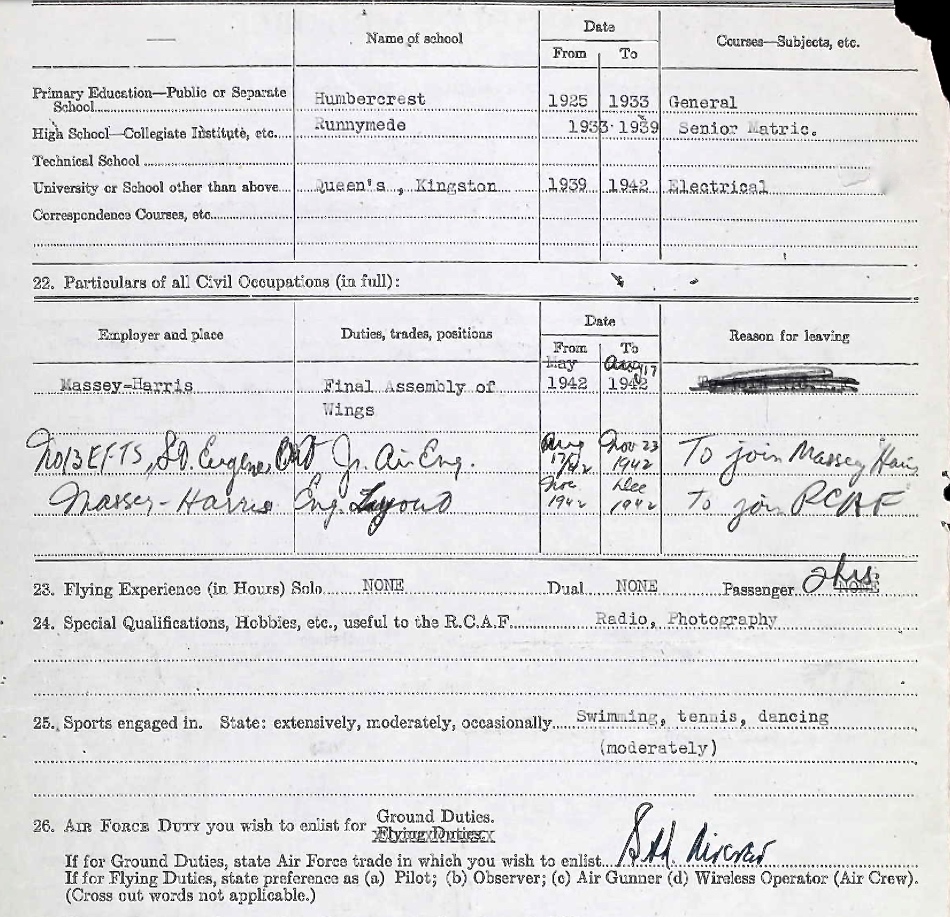 Name of school Date Courses—Subjects, etc.
From To
Primary Education—Public or Separate
School Humbercrest 1925 1933 General
High School—Collegiate Institute, etc. Runnymede 1933-1939 Senior Matric.
Technical School
University or School other than above Queen's , Kingston 1939 1942 Electrical
Correspondence Courses, etc.
22. Particulars of all Civil Occupations (in full):
Employer and place Duties, trades, positions Date Reason for leaving
From To
May Aug 17
Massey-Harris Final Assembly of 1942 1942
Wings
No 13 EFTS, St. Eugene, Ont Jr. Air Eng. Aug 17/42 Nov 23 1942 To join Massey Harris
Massey-Harris Eng. Layout Nov 1942 Dec 1942 To join RCAF
23. Flying Experience (in Hours) Solo NONE Dual NONE Passenger 2 hrs. NONE
24. Special Qualifications, Hobbies, etc., useful to the R.C.A.F. Radio, Photography
25. Sports engaged in. State: extensively, moderately, occasionally Swimming, tennis, dancing
(moderately)
26. AIR FORCE DUTY you wish to enlist for Ground Duties.
Flying Duties.
If for Ground Duties, state Air Force trade in which you wish to enlist. Std. Aircrew
If for Flying Duties, state preference as (a) Pilot; (b) Observer; (c) Air Gunner (d) Wireless Operator (Air Crew).
(Cross out words not applicable.)